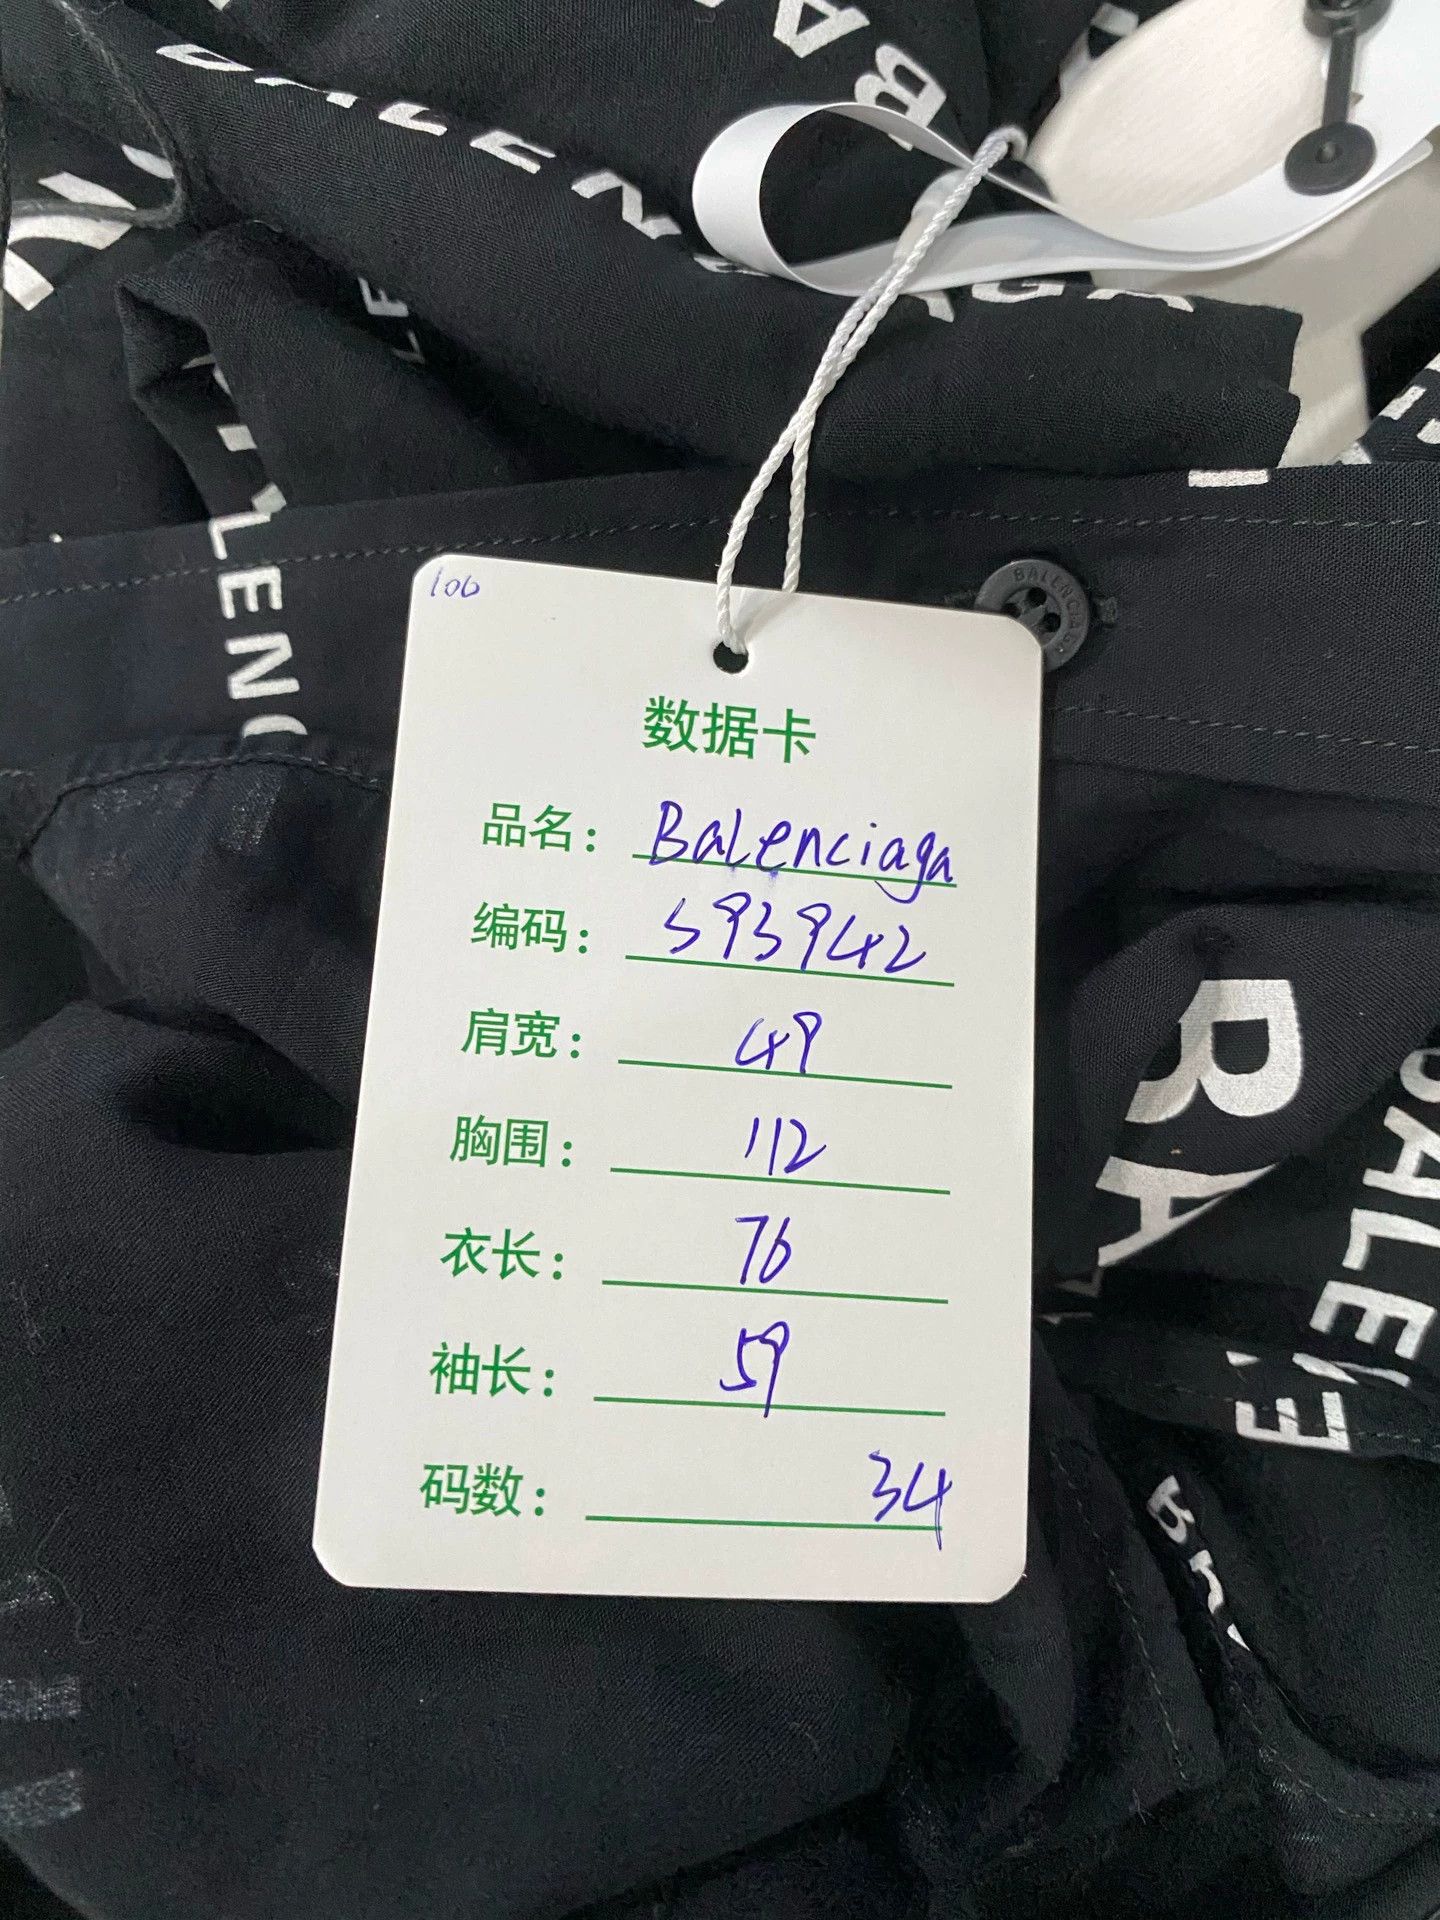 BALEN
BA
LENC
BALENCIAGA
106
数据卡
品名： Balenciaga
编码： 593942
肩宽： 49
胸围： 112
衣长： 76
袖长： 59
码数： 34
BA
BALE